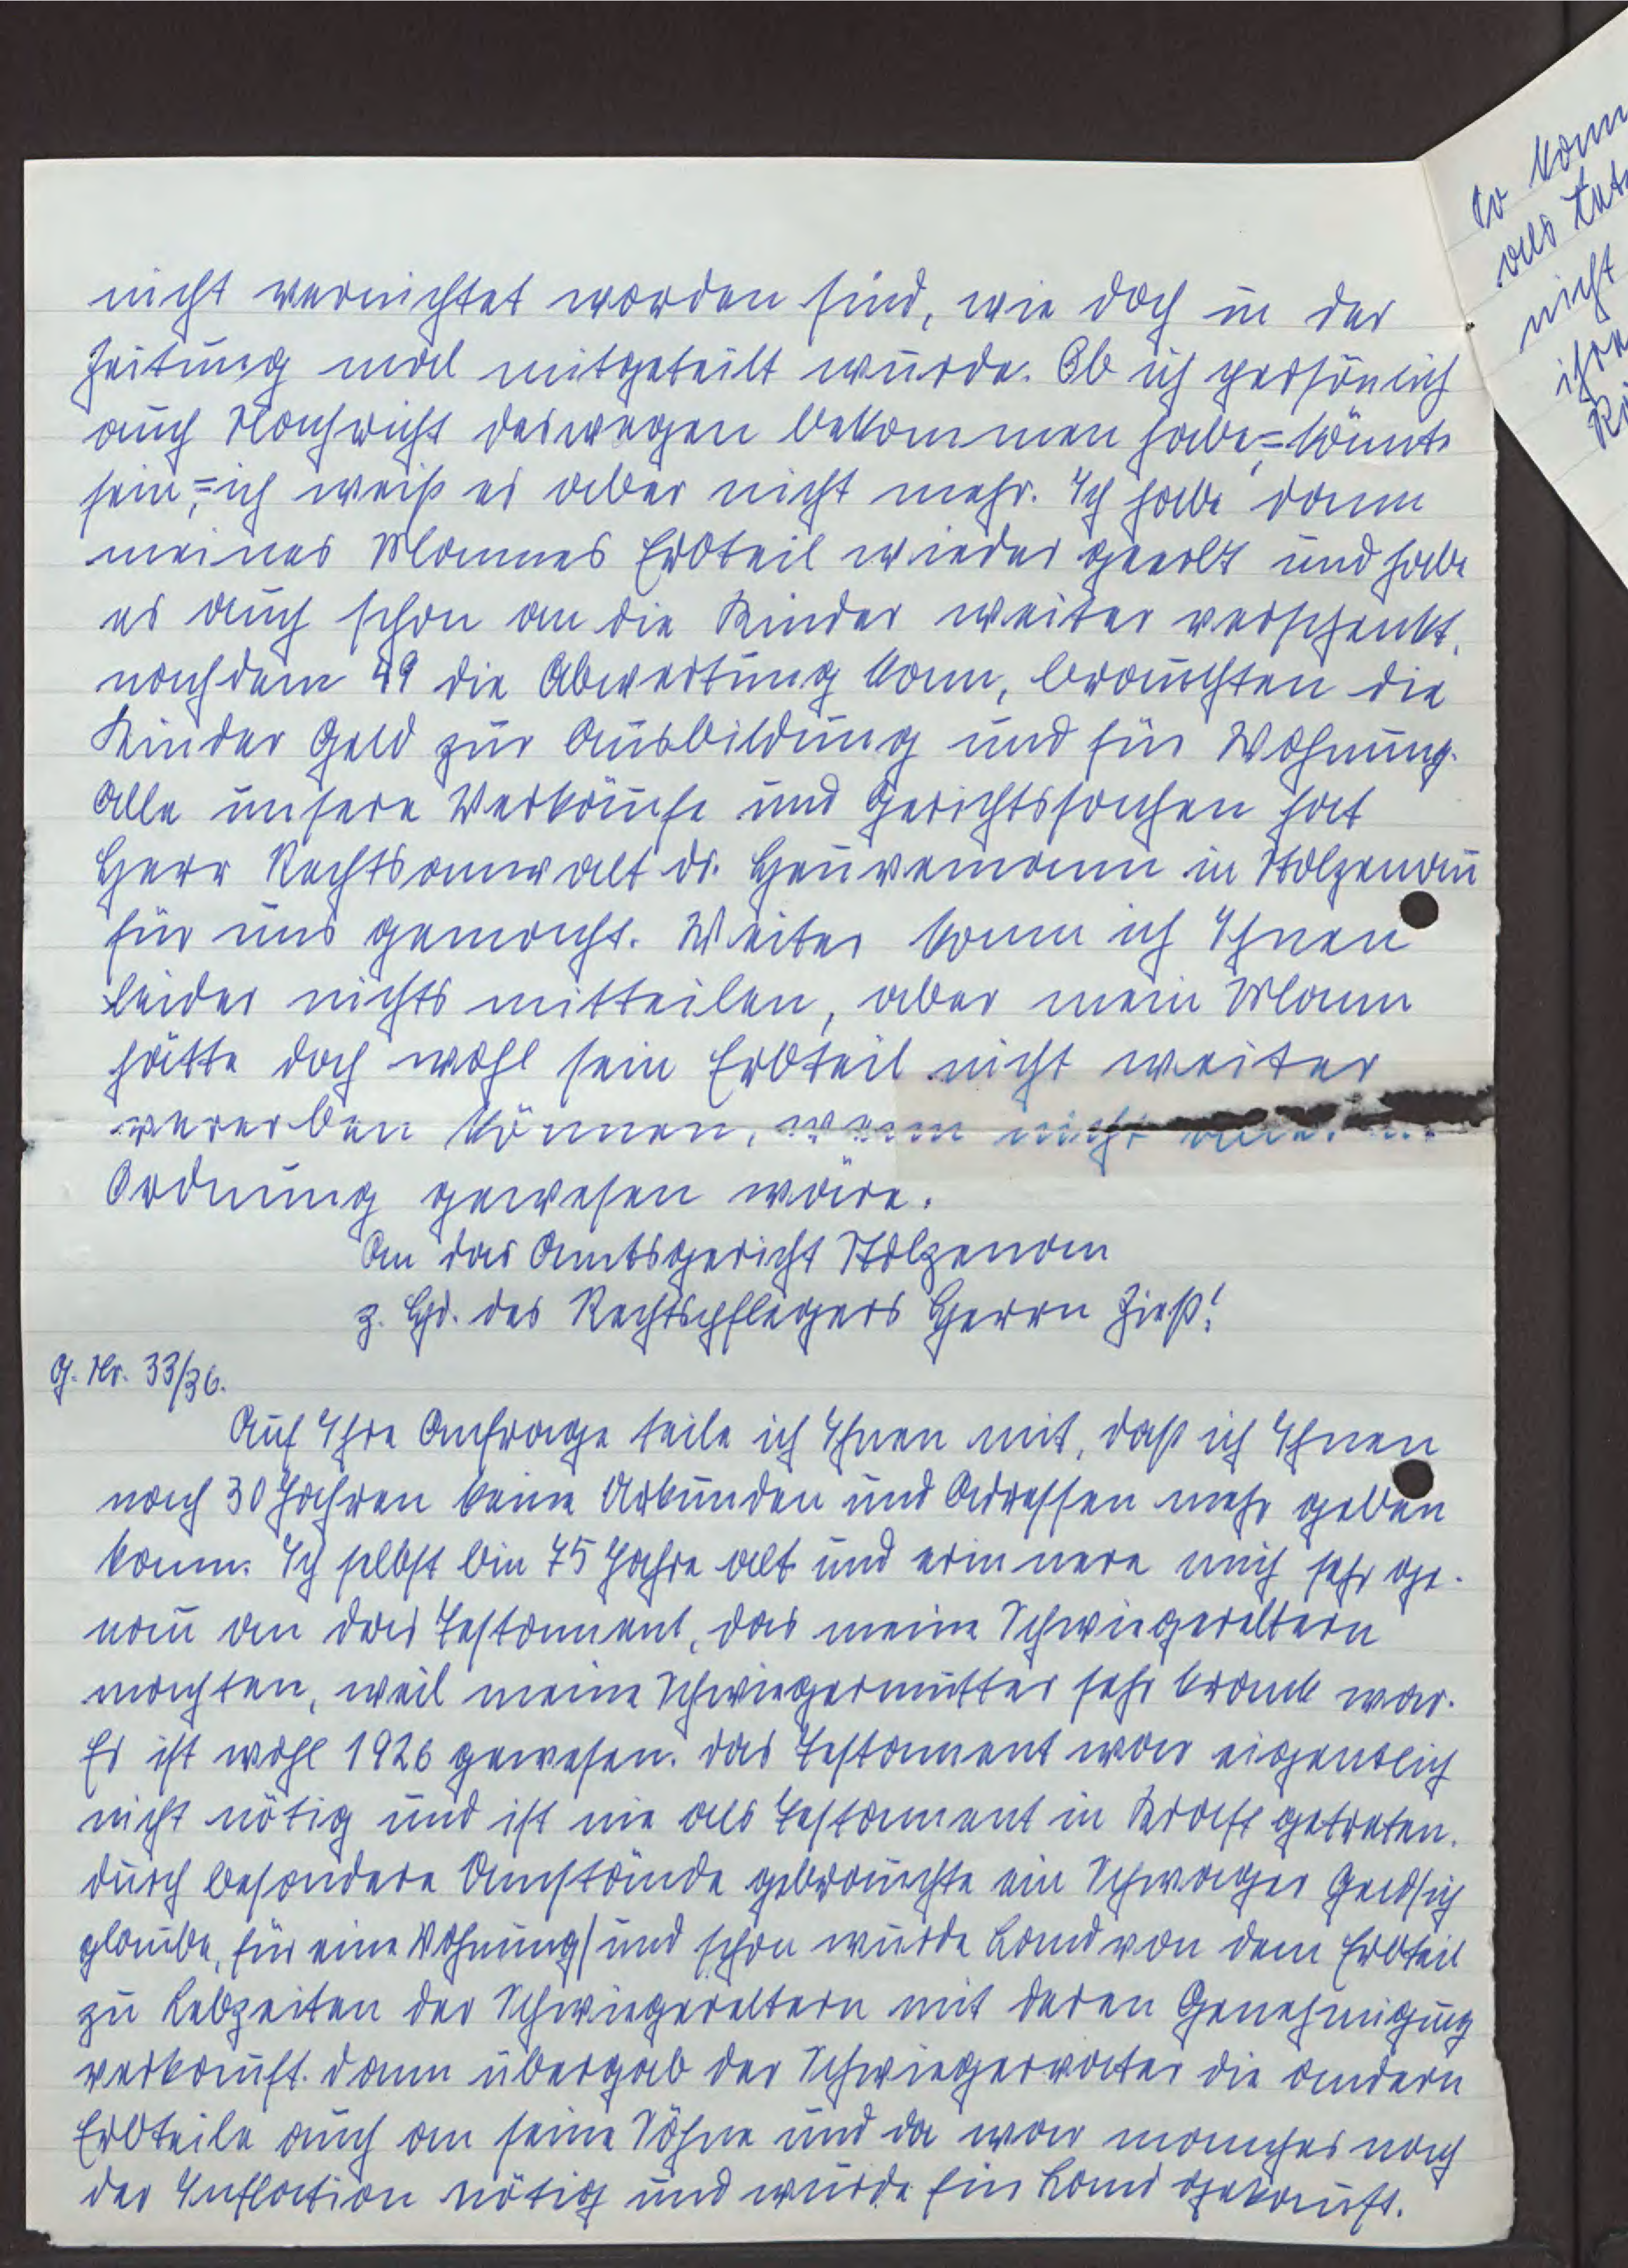 nicht vernichtet worden sind, wie doch in der
Zeitung mal mitgeteilt wurde. Ob ich persönlich
auch Nachricht deswegen bekommen habe,= könnte
sein,= ich weiß es aber nicht mehr. Ich habe dann
meines Mannes Erbteil wieder geerbt und habe
es auch schon an die Kinder weiter verschenkt,
nachdem 49 die Abwertung kam, brauchten die
Kinder Geld zur Ausbildung und für Wohnung.
Alle unsere Verkäufe und Gerichtssachen hat
Herr Rechtsanwalt Dr. in Stolzenau
für uns gemacht. Weiter kann ich Ihnen
leider nichts mitteilen, aber mein Mann
hätte doch wohl sein Erbteil nicht weiter
vererben können, wenn nicht
Ordnung gewesen wäre.
An das Amtsgericht Stolzenau
z. Hd. des Rechtspflegers Herrn Zieß!
G. Nr. 33/36.
Auf Ihre Anfrage teile ich Ihnen mit, daß ich Ihnen
nach 30 Jahren keine Urkunden und Adressen mehr geben
kann. Ich selbst bin 75 Jahre alt und erinnere mich sehr ge-
nau an das Testament, das meine Schwiegereltern
machten, weil meine Schwiegermutter sehr krank war.
Es ist wohl 1926 gewesen. Das Testament war eigentlich
nicht nötig und ist nie als Testament in Kraft getreten.
Durch besondere Umstände gebrauchte ein Schwager Geld/ich
glaube, für eine Wohnung/ und schon wurde Land von dem Erbteil
zu Lebzeiten der Schwiegereltern mit deren Genehmigung
verkauft. Dann übergab der Schwiegervater die andern
Erbteile auch an seine Söhne und da war manches nach
der Inflation nötig und wurde ein Land gekauft.
so
als
nicht